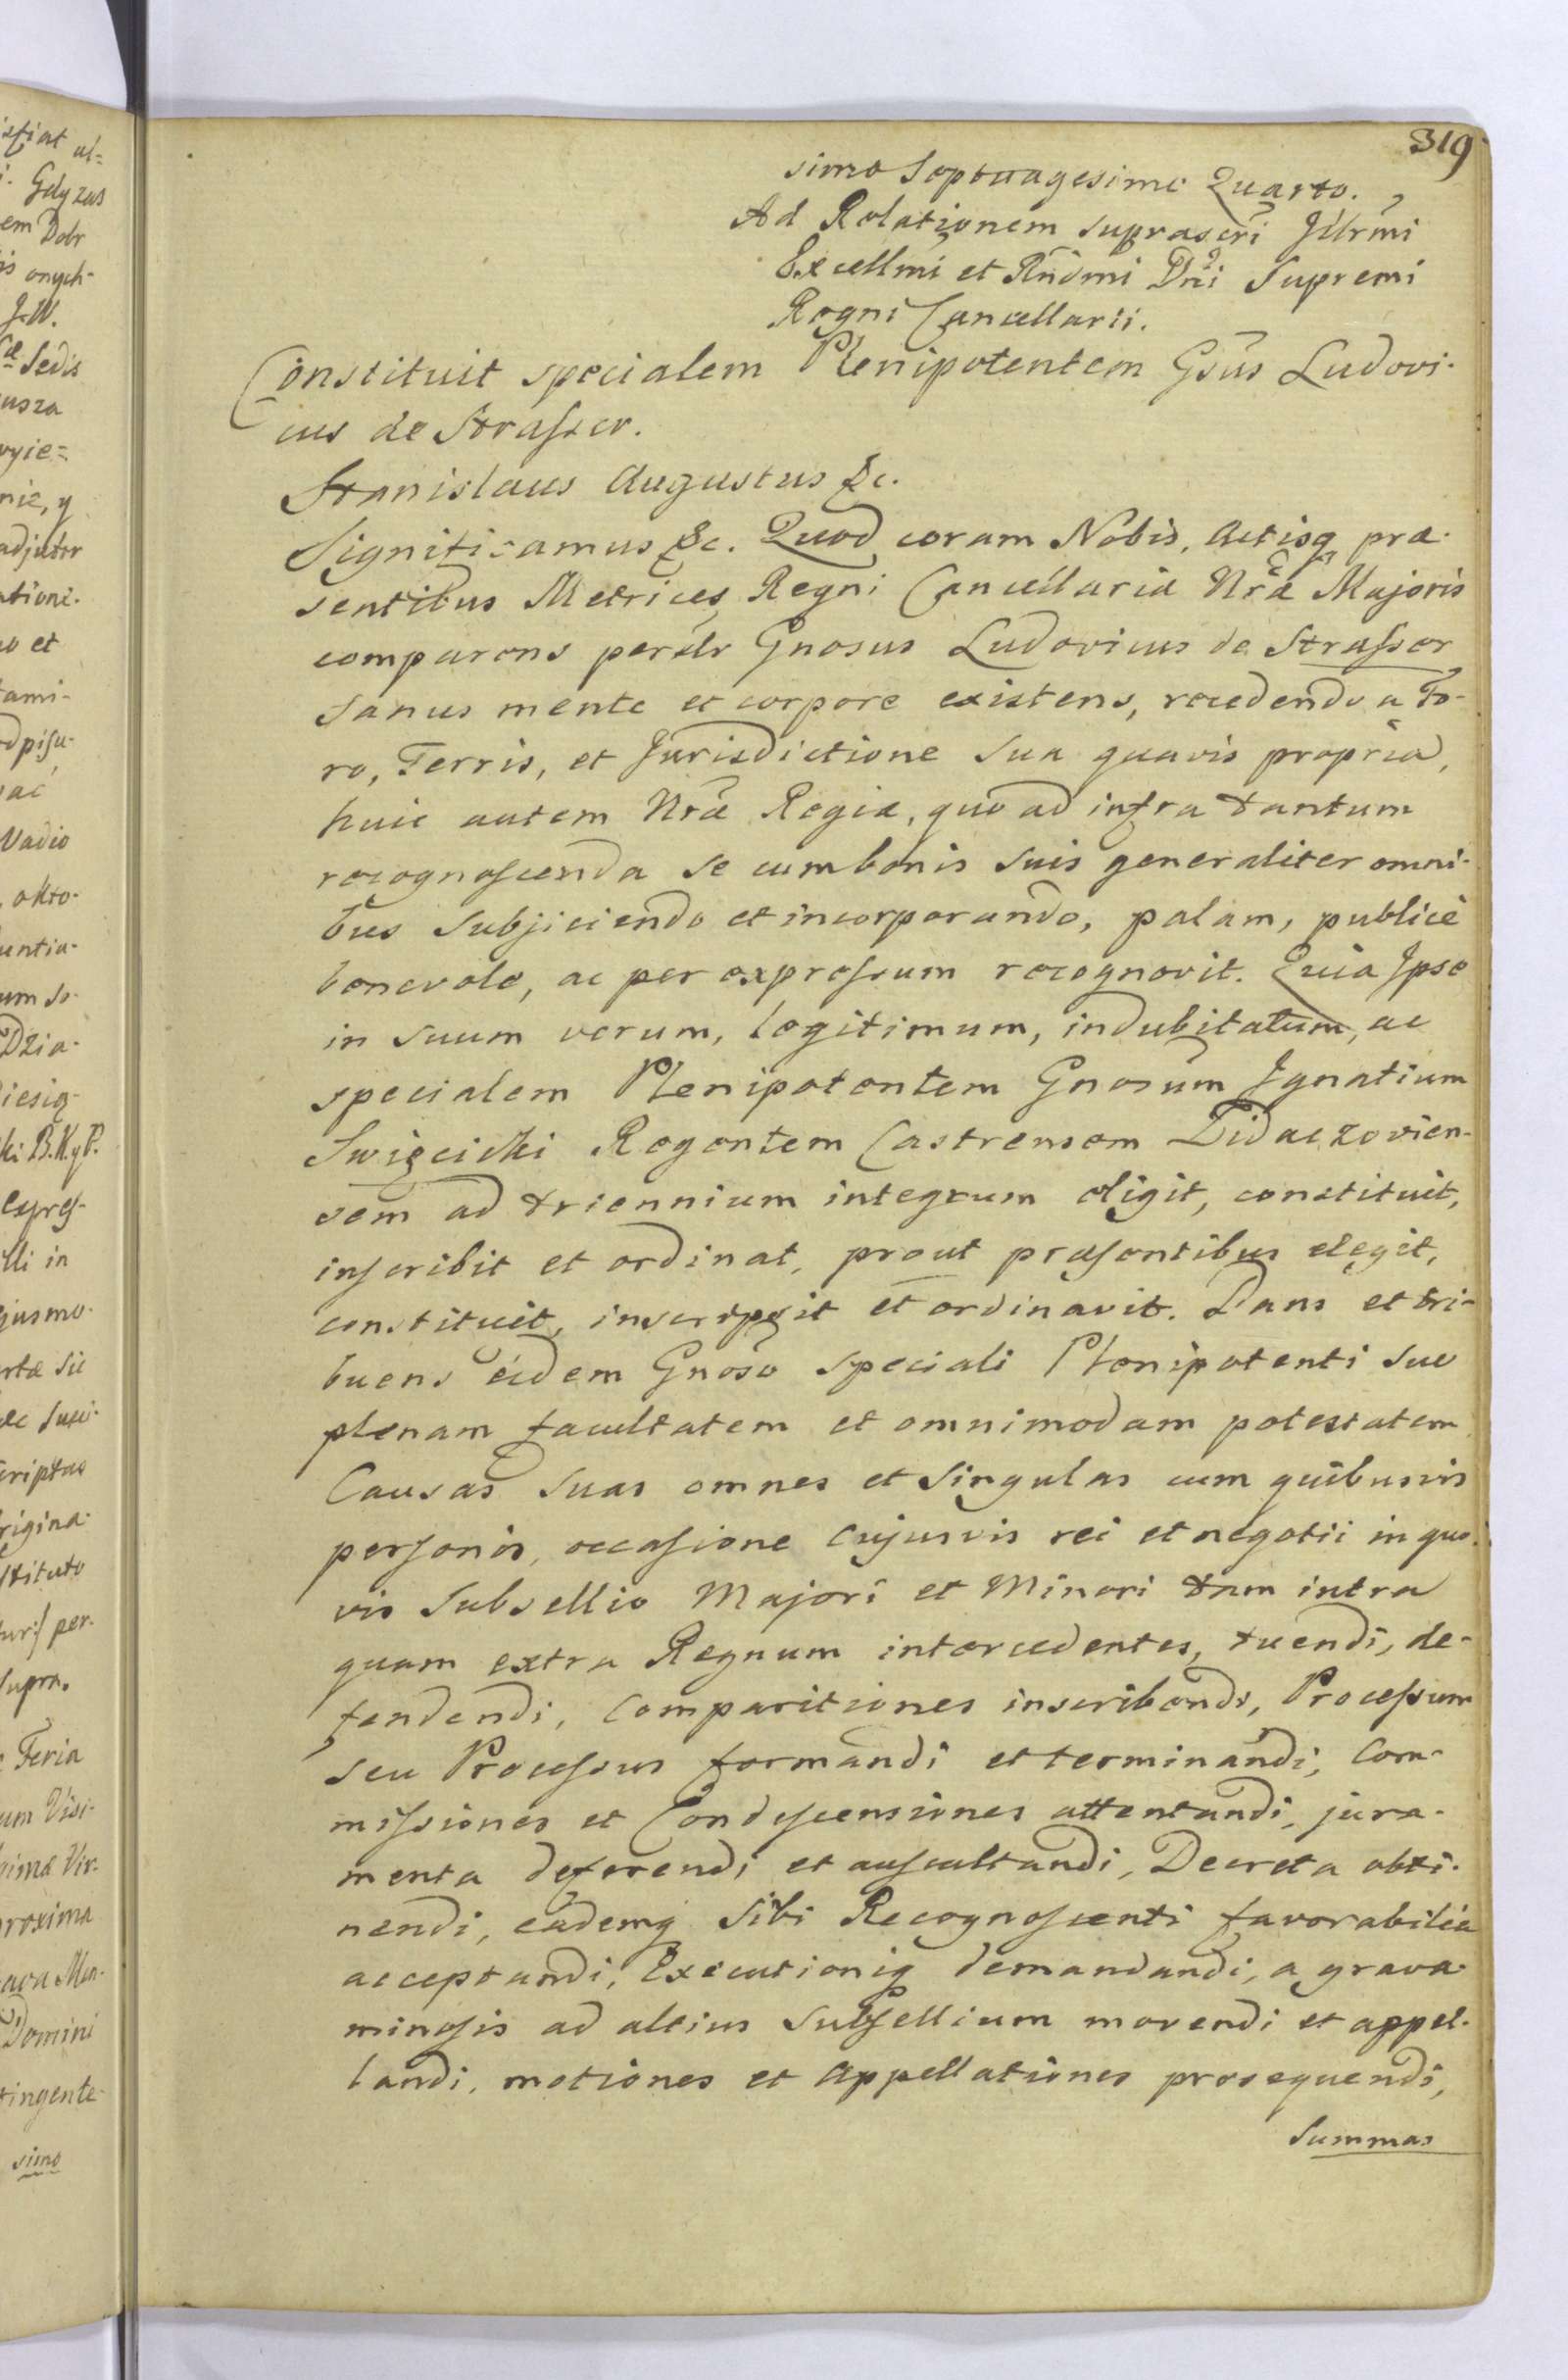 319
simo Septuagesimo Quarto.
Ad Relationem suprascri Jllrmi
Excellmi et Rndmi Dni Supremi
Regni Cancellarii.
Constituit specialem Plenipotentem Gsus Ludovi-
cus de Strasser.
Stanislaus Augustus &c.
Significamus &c. Quod coram Nobis, Actisq præ-
sentibus Metrices Regni Cancellariæ Nræ Majoris
comparens perslr Gnosus Ludovicus de Strasser
sanus mente et corpore existens, recedendo a Fo-
ro, Terris, et Jurisdictione sua quavis propria,
huic autem Nræ Regiæ, quo ad infra tantum
recognoscenda se cum bonis suis generaliter omni-
bus subjiciendo et incorporando, palam, publicè
benevole, ac per expressum recognovit. Quia Ipse
in suum verum, legitimum, indubitatum, ac
specialem Plenipotentem Gnosum Ignatium
Swięcicki Regentem Castrensem Zidaczovien-
sem ad triennium integrum eligit, constituit,
inscribit et ordinat, prout præsentibus elegit,
constituit, inscripsit et ordinavit. Dans et tri-
buens eidem Gnoso speciali Plenipotenti suo
plenam facultatem et omnimodam potestatem
Causas suas omnes et singulas cum quibusvis
personis, occasione cujusvis rei et negotii in quo-
vis Subsellio Majori et Minori tam intra
quam extra Regnum intercedentes, tuendi, de-
fendendi, Comparitiones inscribendi, Processum
seu Processus formandi et terminandi, Com-
missiones et Condescensiones attentandi, jura-
menta deferendi et auscultandi, Decreta obti-
nendi, eademq sibi Recognoscenti favorabilia
acceptandi, Executioniq demandandi, a grava-
minosis ad altius Subsellium movendi et appel-
landi, motiones et Appellationes prosequendi,
Summas